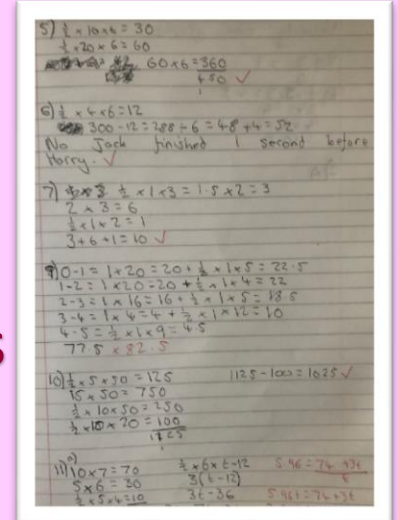 5) ½ × 10 × 6 = 30
½ × 20 × 6 = 60
60 × 6 = 360
450 ✓
6) ½ × 4 × 6 = 12
300 - 12 = 288 ÷ 6 = 48 + 4 = 52
No Jack finished 1 second before
Harry. ✓
7) ½ × 1 × 3 = 1.5 × 2 = 3
2 × 3 = 6
½ × 1 × 2 = 1
3 + 6 + 1 = 10 ✓
9) 0-1 = 1 × 20 = 20 + ½ × 1 × 5 = 22.5
1-2 = 1 × 20 = 20 + ½ × 1 × 4 = 22
2-3 = 1 × 16 = 16 + ½ × 1 × 5 = 18.5
3-4 = 1 × 4 = 4 + ½ × 1 × 12 = 10
4-5 = ½ × 1 × 9 = 4.5
77.5 × 82.5
10) ½ × 5 × 50 = 125 1125 - 100 = 1025 ✓
15 × 50 = 750
½ × 10 × 50 = 250
½ × 10 × 20 = 100
1125
11) a) 10 × 7 = 70 ½ × 6 × t-12 5.96 = 74 + 3t
5 × 6 = 30 3(t-12)
½ × 5 × 4 = 10 3t - 36 5.96t = 74 + 3t
S